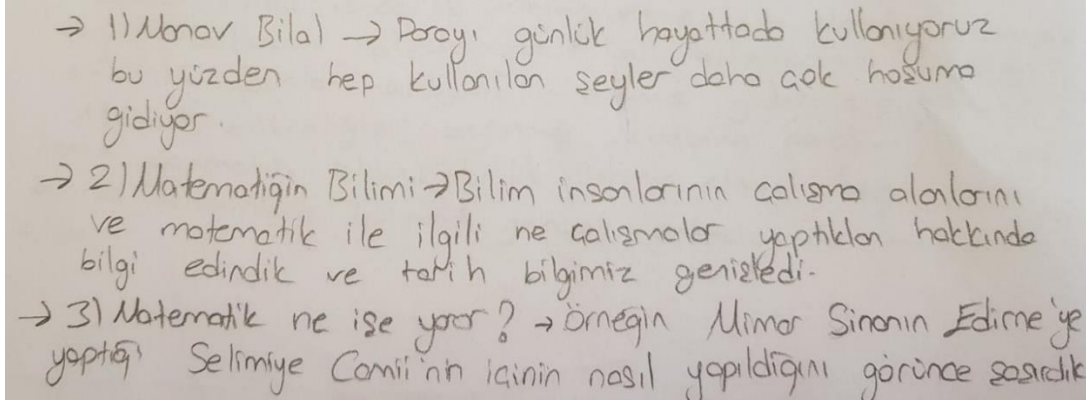 → 1) Manav Bilal → Parayı günlük hayattada kullanıyoruz
bu yüzden hep kullanılan şeyler daha çok hoşuma
gidiyor.
→ 2) Matematiğin Bilimi → Bilim insanlarının çalışma alanlarını
ve matematik ile ilgili ne çalışmalar yaptıkları hakkında
bilgi edindik ve tarih bilgimiz genişledi.
→ 3) Matematik ne işe yarar? → Örneğin Mimar Sinanın Edirne'ye
yaptığı Selimiye Camii'nin içinin nasıl yapıldığını görünce şaşırdık